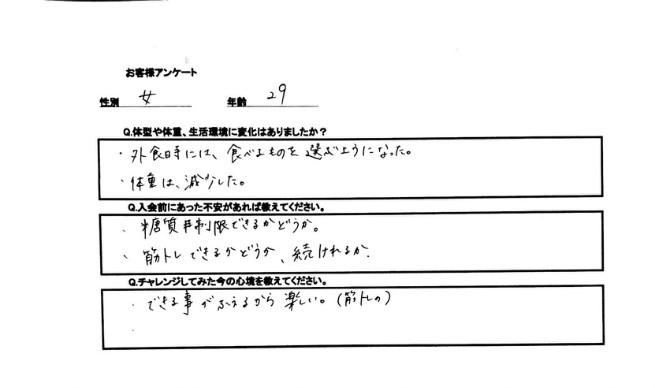 お客様アンケート
性別 女 年齢 29
Q.体型や体重、生活環境に変化はありましたか？
・外食時には、食べるものを選ぶようになった。
・体重は、減少した。
Q.入会前にあった不安があれば教えてください。
・糖質制限できるかどうか。
・筋トレできるかどうか、続けれるか.
Q.チャレンジしてみた今の心境を教えてください。
・できる事がふえるから楽しい。(筋トレの)
・